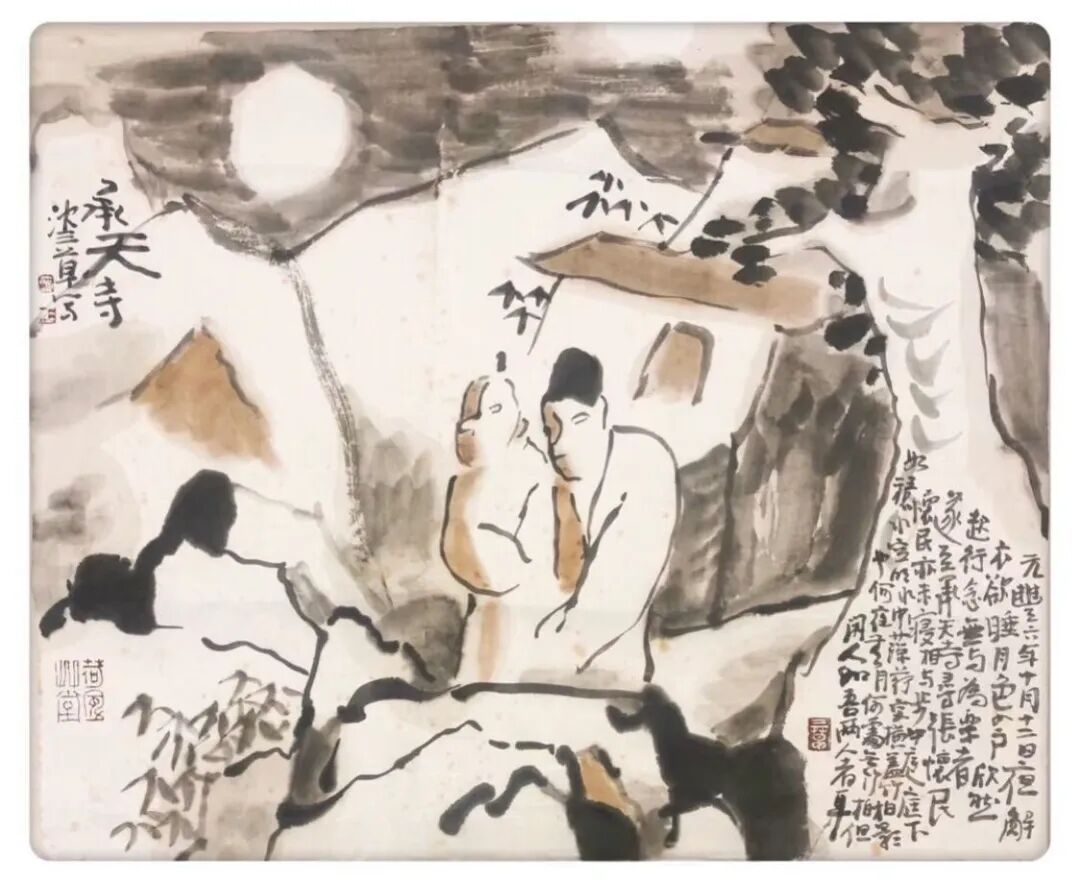 承天寺
三草写
元豐六年十月十二日夜解
衣欲睡月色入户欣然
起行念無与為樂者
遂至承天寺尋張懷民
懷民亦未寢相与步中庭庭下
如積水空明水中藻荇交横盖竹柏影
也何夜無月何處無竹柏但
閑人如吾兩人者耳